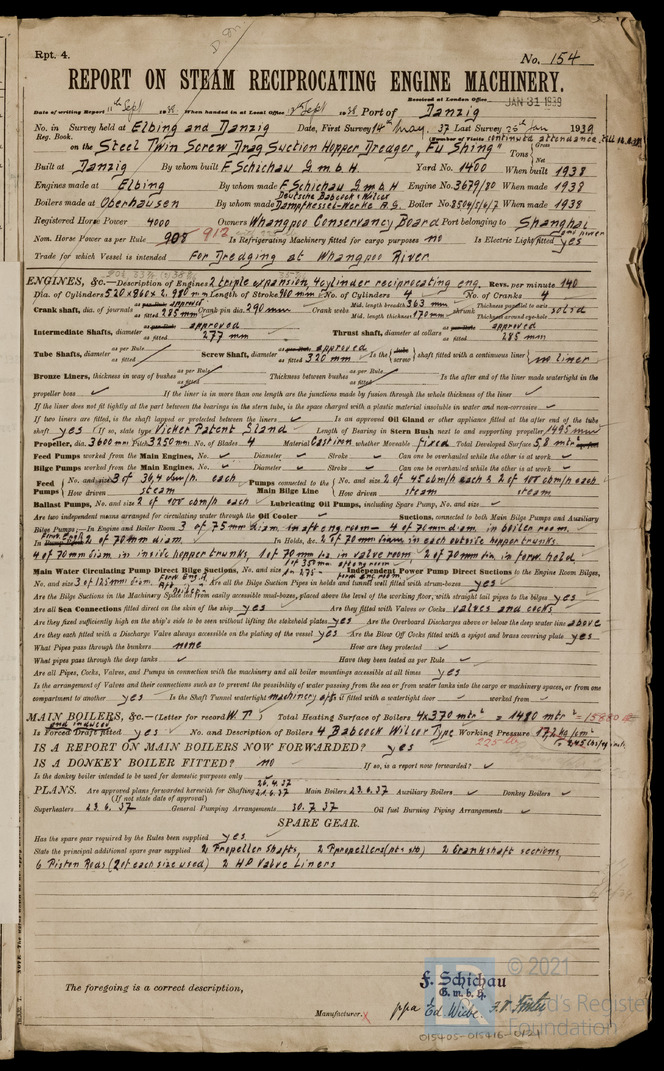 Rpt. 4.
No. 154
REPORT ON STEAM RECIPROCATING ENGINE MACHINERY.
Received at London Office JAN 31 1939
Date of writing Report 11th Sept 1938 When handed in at Local Office Sept 1938 Port of Danzig
No. in Survey held at Elbing and Danzig Date, First Survey 14th May 37 Last Survey Jan 1939
Reg. Book. (Number of Visits continued attendance
on the Steel Twin Screw Drag Suction Hopper Dredger "Fu Shing" Tons Gross Net
Built at Danzig By whom built F. Schichau G.m.b.H. Yard No. 1400 When built 1938
Engines made at Elbing By whom made F. Schichau G.m.b.H Engine No. 3679/80 When made 1938
Boilers made at Oberhausen By whom made Deutsche Babcock & Wilcox Dampfkessel-Werke A.G. Boiler No. 8504/5/6/7 When made 1938
Registered Horse Power 4000 Owners Whangpoo Conservancy Board Port belonging to Shanghai
Nom. Horse Power as per Rule 908 912 Is Refrigerating Machinery fitted for cargo purposes no Is Electric Light fitted yes
Trade for which Vessel is intended For Dredging at Whangpoo River
ENGINES, &c.—Description of Engines 2 triple expansion 4cylinder reciprocating eng. Revs. per minute 140
Dia. of Cylinders 520x860x2.980 mm Length of Stroke 910 mm No. of Cylinders 4 No. of Cranks 4
Crank shaft, dia. of journals as per Rule approved as fitted 285 mm Crank pin dia. 290 mm Crank webs Mid. length breadth 363 mm Mid. length thickness 170 mm shrunk Thickness parallel to axis solid Thickness around eye-hole
Intermediate Shafts, diameter as per Rule approved as fitted 277 mm Thrust shaft, diameter at collars as per Rule approved as fitted 285 mm
Tube Shafts, diameter as per Rule as fitted Screw Shaft, diameter as per Rule approved as fitted 320 mm Is the tube screw shaft fitted with a continuous liner no liner
Bronze Liners, thickness in way of bushes as per Rule as fitted Thickness between bushes as per Rule as fitted Is the after end of the liner made watertight in the
propeller boss If the liner is in more than one length are the junctions made by fusion through the whole thickness of the liner
If the liner does not fit tightly at the part between the bearings in the stern tube, is the space charged with a plastic material insoluble in water and non-corrosive
If two liners are fitted, is the shaft lapped or protected between the liners Is an approved Oil Gland or other appliance fitted at the after end of the tube
shaft yes If so, state type Vicker Patent Gland Length of Bearing in Stern Bush next to and supporting propeller 1495 mm
Propeller, dia. 3600 mm Pitch 3250 mm No. of Blades 4 Material Cast iron whether Moveable Fixed Total Developed Surface 5,8 mtr²
Feed Pumps worked from the Main Engines, No. Diameter Stroke Can one be overhauled while the other is at work
Bilge Pumps worked from the Main Engines, No. Diameter Stroke Can one be overhauled while the other is at work
Feed Pumps No. and size 3 of 36,4 cbm/h. each Pumps connected to the Main Bilge Line No. and size 2 of 45 cbm/h each & 2 of 100 cbm/h each
How driven steam How driven steam steam
Ballast Pumps, No. and size 2 of 100 cbm/h each Lubricating Oil Pumps, including Spare Pump, No. and size
Are two independent means arranged for circulating water through the Oil Cooler Suctions, connected to both Main Bilge Pumps and Auxiliary
Bilge Pumps;—In Engine and Boiler Room 3 of 75 mm diam in aft eng room – 4 of 70 m diam in boiler room.
In forw. eng.R. 2 of 70 m diam In Holds, &c. 2 of 70 mm diam in each outside hopper trunks.
4 of 70 mm diam in inside hopper trunks, 1 of 70 mm diam in valve room 2 of 70 mm diam in forw. hold
Main Water Circulating Pump Direct Bilge Suctions, No. and size Independent Power Pump Direct Suctions to the Engine Room Bilges,
No. and size 3 of 125 mm diam. Are all the Bilge Suction Pipes in holds and tunnel well fitted with strum-boxes yes
Are the Bilge Suctions in the Machinery Space led from easily accessible mud-boxes, placed above the level of the working floor, with straight tail pipes to the bilges yes
Are all Sea Connections fitted direct on the skin of the ship yes Are they fitted with Valves or Cocks valves and cocks
Are they fixed sufficiently high on the ship's side to be seen without lifting the stokehold plates yes Are the Overboard Discharges above or below the deep water line above
Are they each fitted with a Discharge Valve always accessible on the plating of the vessel yes Are the Blow Off Cocks fitted with a spigot and brass covering plate yes
What Pipes pass through the bunkers none How are they protected
What pipes pass through the deep tanks Have they been tested as per Rule
Are all Pipes, Cocks, Valves, and Pumps in connection with the machinery and all boiler mountings accessible at all times yes
Is the arrangement of Valves and their connections such as to prevent the possibility of water passing from the sea or from water tanks into the cargo or machinery spaces, or from one
compartment to another yes Is the Shaft Tunnel watertight machinery aft. Is it fitted with a watertight door worked from
MAIN BOILERS, &c.—(Letter for record W.T.) Total Heating Surface of Boilers 4x370 mtr² = 1480 mtr² = 15880
Is Forced Draft fitted and induced yes No. and Description of Boilers 4 Babcock Wilcox Type Working Pressure 17,2 kg/cm²
225 lb 245 lbs/sq.inch.
IS A REPORT ON MAIN BOILERS NOW FORWARDED? yes
IS A DONKEY BOILER FITTED? no If so, is a report now forwarded?
Is the donkey boiler intended to be used for domestic purposes only
PLANS. Are approved plans forwarded herewith for Shafting 26.4.37 21.6.37 Main Boilers 23.6.37 Auxiliary Boilers Donkey Boilers
(If not state date of approval)
Superheaters 23.6.37 General Pumping Arrangements 30.7.37 Oil fuel Burning Piping Arrangements
SPARE GEAR.
Has the spare gear required by the Rules been supplied yes
State the principal additional spare gear supplied 2 Propeller Shafts, 2 Propellers (pts sto) 2 Crankshaft sections,
6 Piston Rods (2 of each size used) 2 HP Valve Liners
The foregoing is a correct description,
F. Schichau
G.m.b.H.
Manufacturer. ppa Ed. Wiebe
© 2021
Lloyd's Register
Foundation
015405-015416-0121